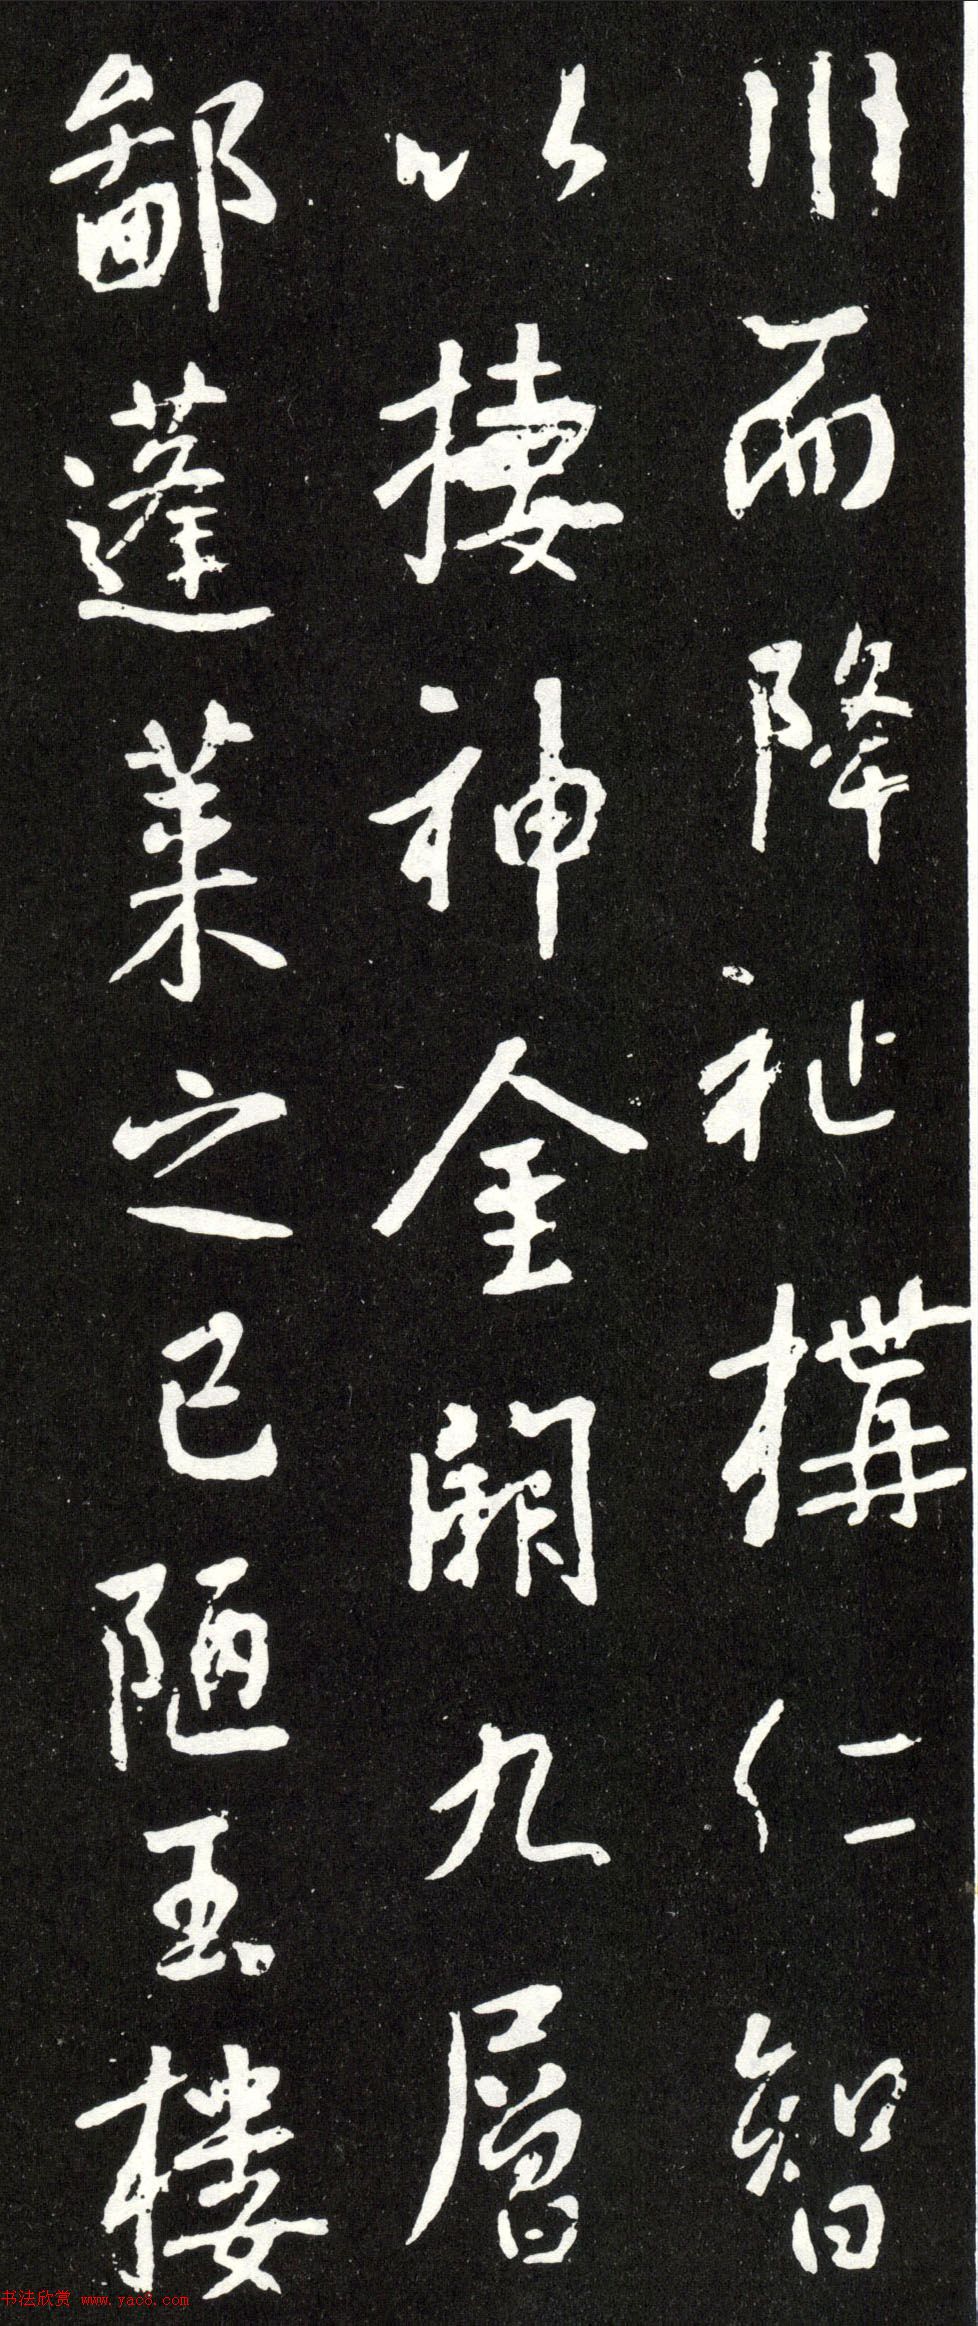 川而降祉構仁智
以棲神金闕九層
鄙蓬萊之已陋玉樓
书法欣赏 www.yac8.com